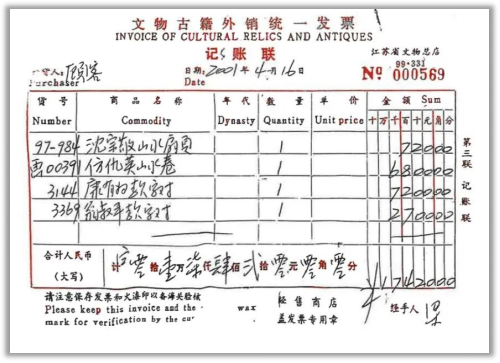 文物古籍外销统一发票
INVOICE OF CULTURAL RELICS AND ANTIQUES
记账联
江苏省文物总店
99·331
顾客
Purchaser
日期: 2001年4月16
Date
Nº 000569
货号 商品名称 年代 数量 单价 金额 Sum
Number Commodity Dynasty Quantity Unit price 十万千百十元角分
97-984 沈宗敬山水扇页 1 72000
00391 仿仇英山水卷 1 680000
3144 康有为款字对 1 720000
3369 翁叔平款字对 1 270000
合计人民币
(大写)
计 零拾壹万柒仟肆佰弍拾零元零角零分 ¥1742000
第三联 记账联
请注意保存发票和火漆印以备海关验核
Please keep this invoice and the wax
mark for verification by the cu
经售商店
盖发票专用章
经手人 梁